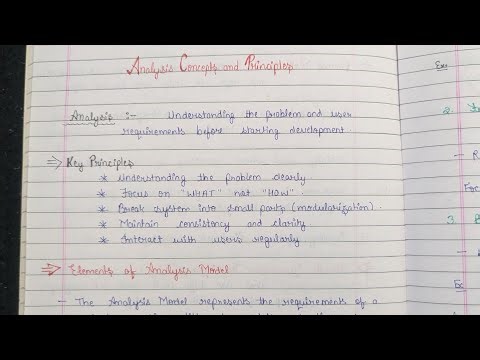 Analysis Concepts and Principles.
Analysis :- Understanding the problem and user
requirements before starting development
⇒ Key Principles
* Understanding the problem clearly.
* Focus on "WHAT" not "HOW".
* Break system into small parts (modularization).
* Maintain consistency and clarity
* Interact with users regularly
⇒ Elements of Analysis Model
- The Analysis Model represents the requirements of a
2.
3.